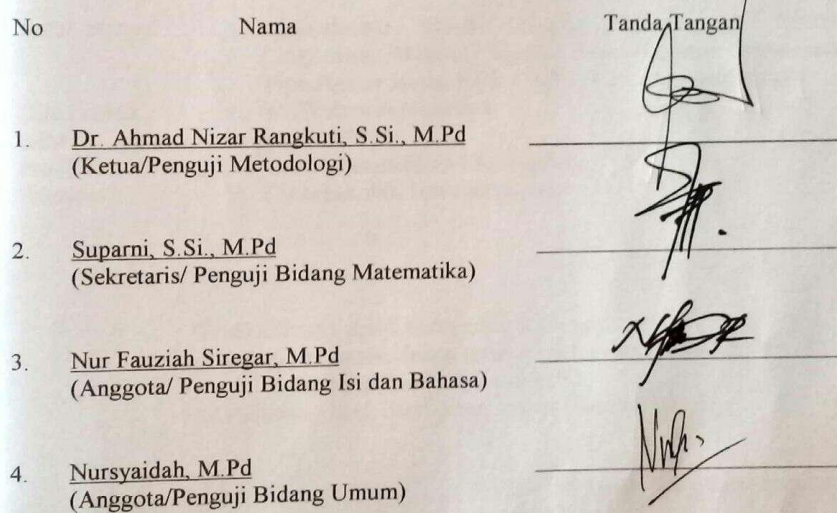 No Nama Tanda Tangan
1. Dr. Ahmad Nizar Rangkuti, S.Si., M.Pd
(Ketua/Penguji Metodologi)
2. Suparni, S.Si., M.Pd
(Sekretaris/ Penguji Bidang Matematika)
3. Nur Fauziah Siregar, M.Pd
(Anggota/ Penguji Bidang Isi dan Bahasa)
4. Nursyaidah, M.Pd
(Anggota/Penguji Bidang Umum)